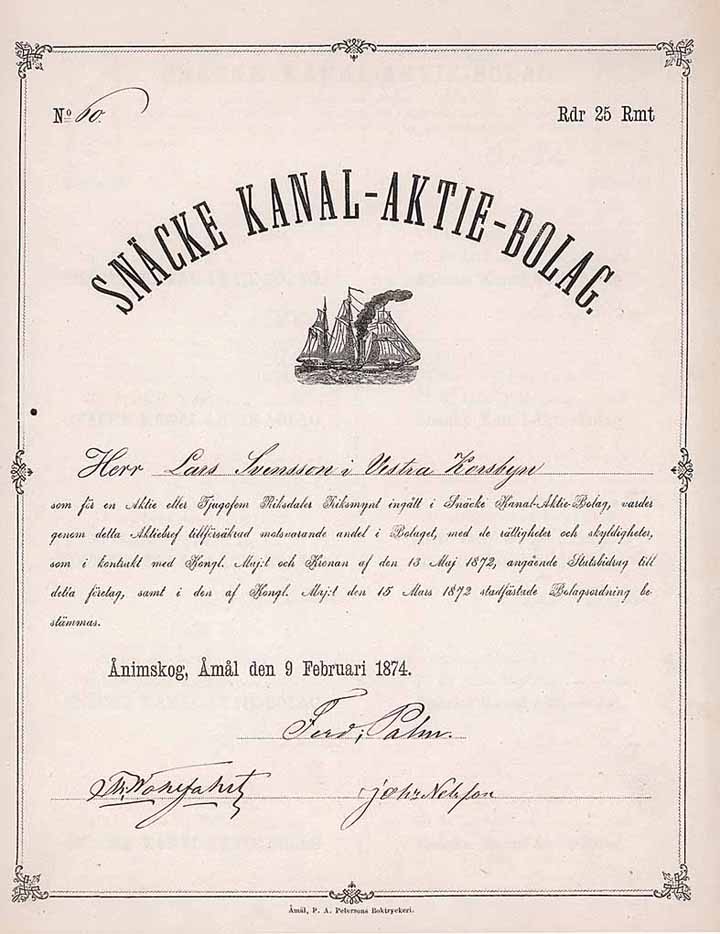 No 60.
Rdr 25 Rmt
SNÄCKE KANAL-AKTIE-BOLAG.
Herr Lars Svensson i Vestra Korsbyn
som för en Aktie eller Tjugofem Riksdaler Riksmynt ingått i Snäcke Kanal-Aktie-Bolag, varder
genom detta Aktiebref tillförsäkrad motsvarande andel i Bolaget, med de rättigheter och skyldigheter,
som i kontrakt med Kongl. Maj:t och Kronan af den 13 Maj 1872, angående Statsbidrag till
detta företag, samt i den af Kongl. Maj:t den 15 Mars 1872 stadfästade Bolagsordning be-
stämmas.
Ånimskog, Åmål den 9 Februari 1874.
Ferd; Palm.
Åmål, P. A. Petersons Boktryckeri.